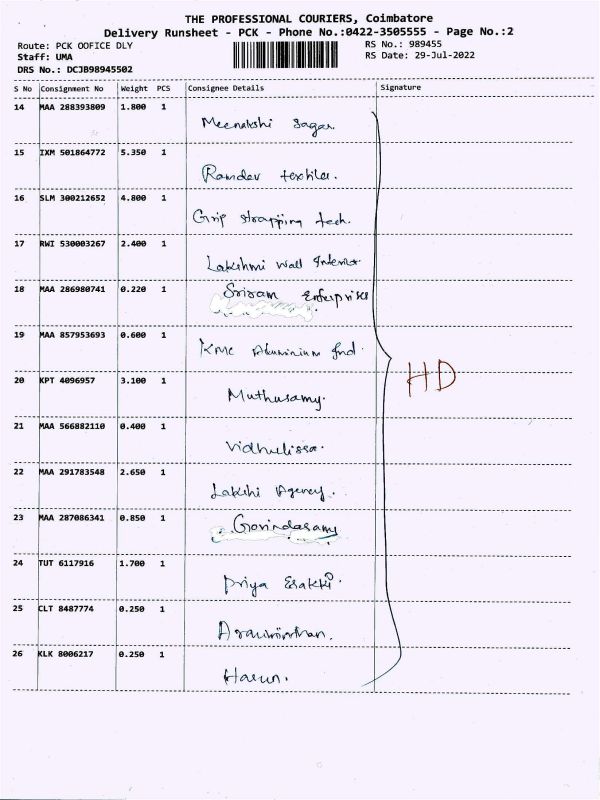 THE PROFESSIONAL COURIERS, Coimbatore
Delivery Runsheet - PCK - Phone No.:0422-3505555 - Page No.:2
Route: PCK OOFICE DLY RS No.: 989455
Staff: UMA RS Date: 29-Jul-2022
DRS No.: DCJB98945502
S No Consignment No Weight PCS Consignee Details Signature
14 MAA 288393809 1.800 1
Meenakshi Sagar.
15 IXM 501864772 5.350 1
Ramdev textiles.
16 SLM 300212652 4.800 1
Grip strapping tech.
17 RWI 530003267 2.400 1
Lakshmi Wall Interior
18 MAA 286980741 0.220 1
Sriram Enterprises
19 MAA 857953693 0.600 1
KMC Aluminium Ind.
HD
20 KPT 4096957 3.100 1
Muthusamy.
21 MAA 566882110 0.400 1
22 MAA 291783548 2.650 1
Lakshi Agency.
23 MAA 287086341 0.850 1
Govindasamy
24 TUT 6117916 1.700 1
Priya Esakki.
25 CLT 8487774 0.250 1
26 KLK 8006217 0.250 1
Harun.